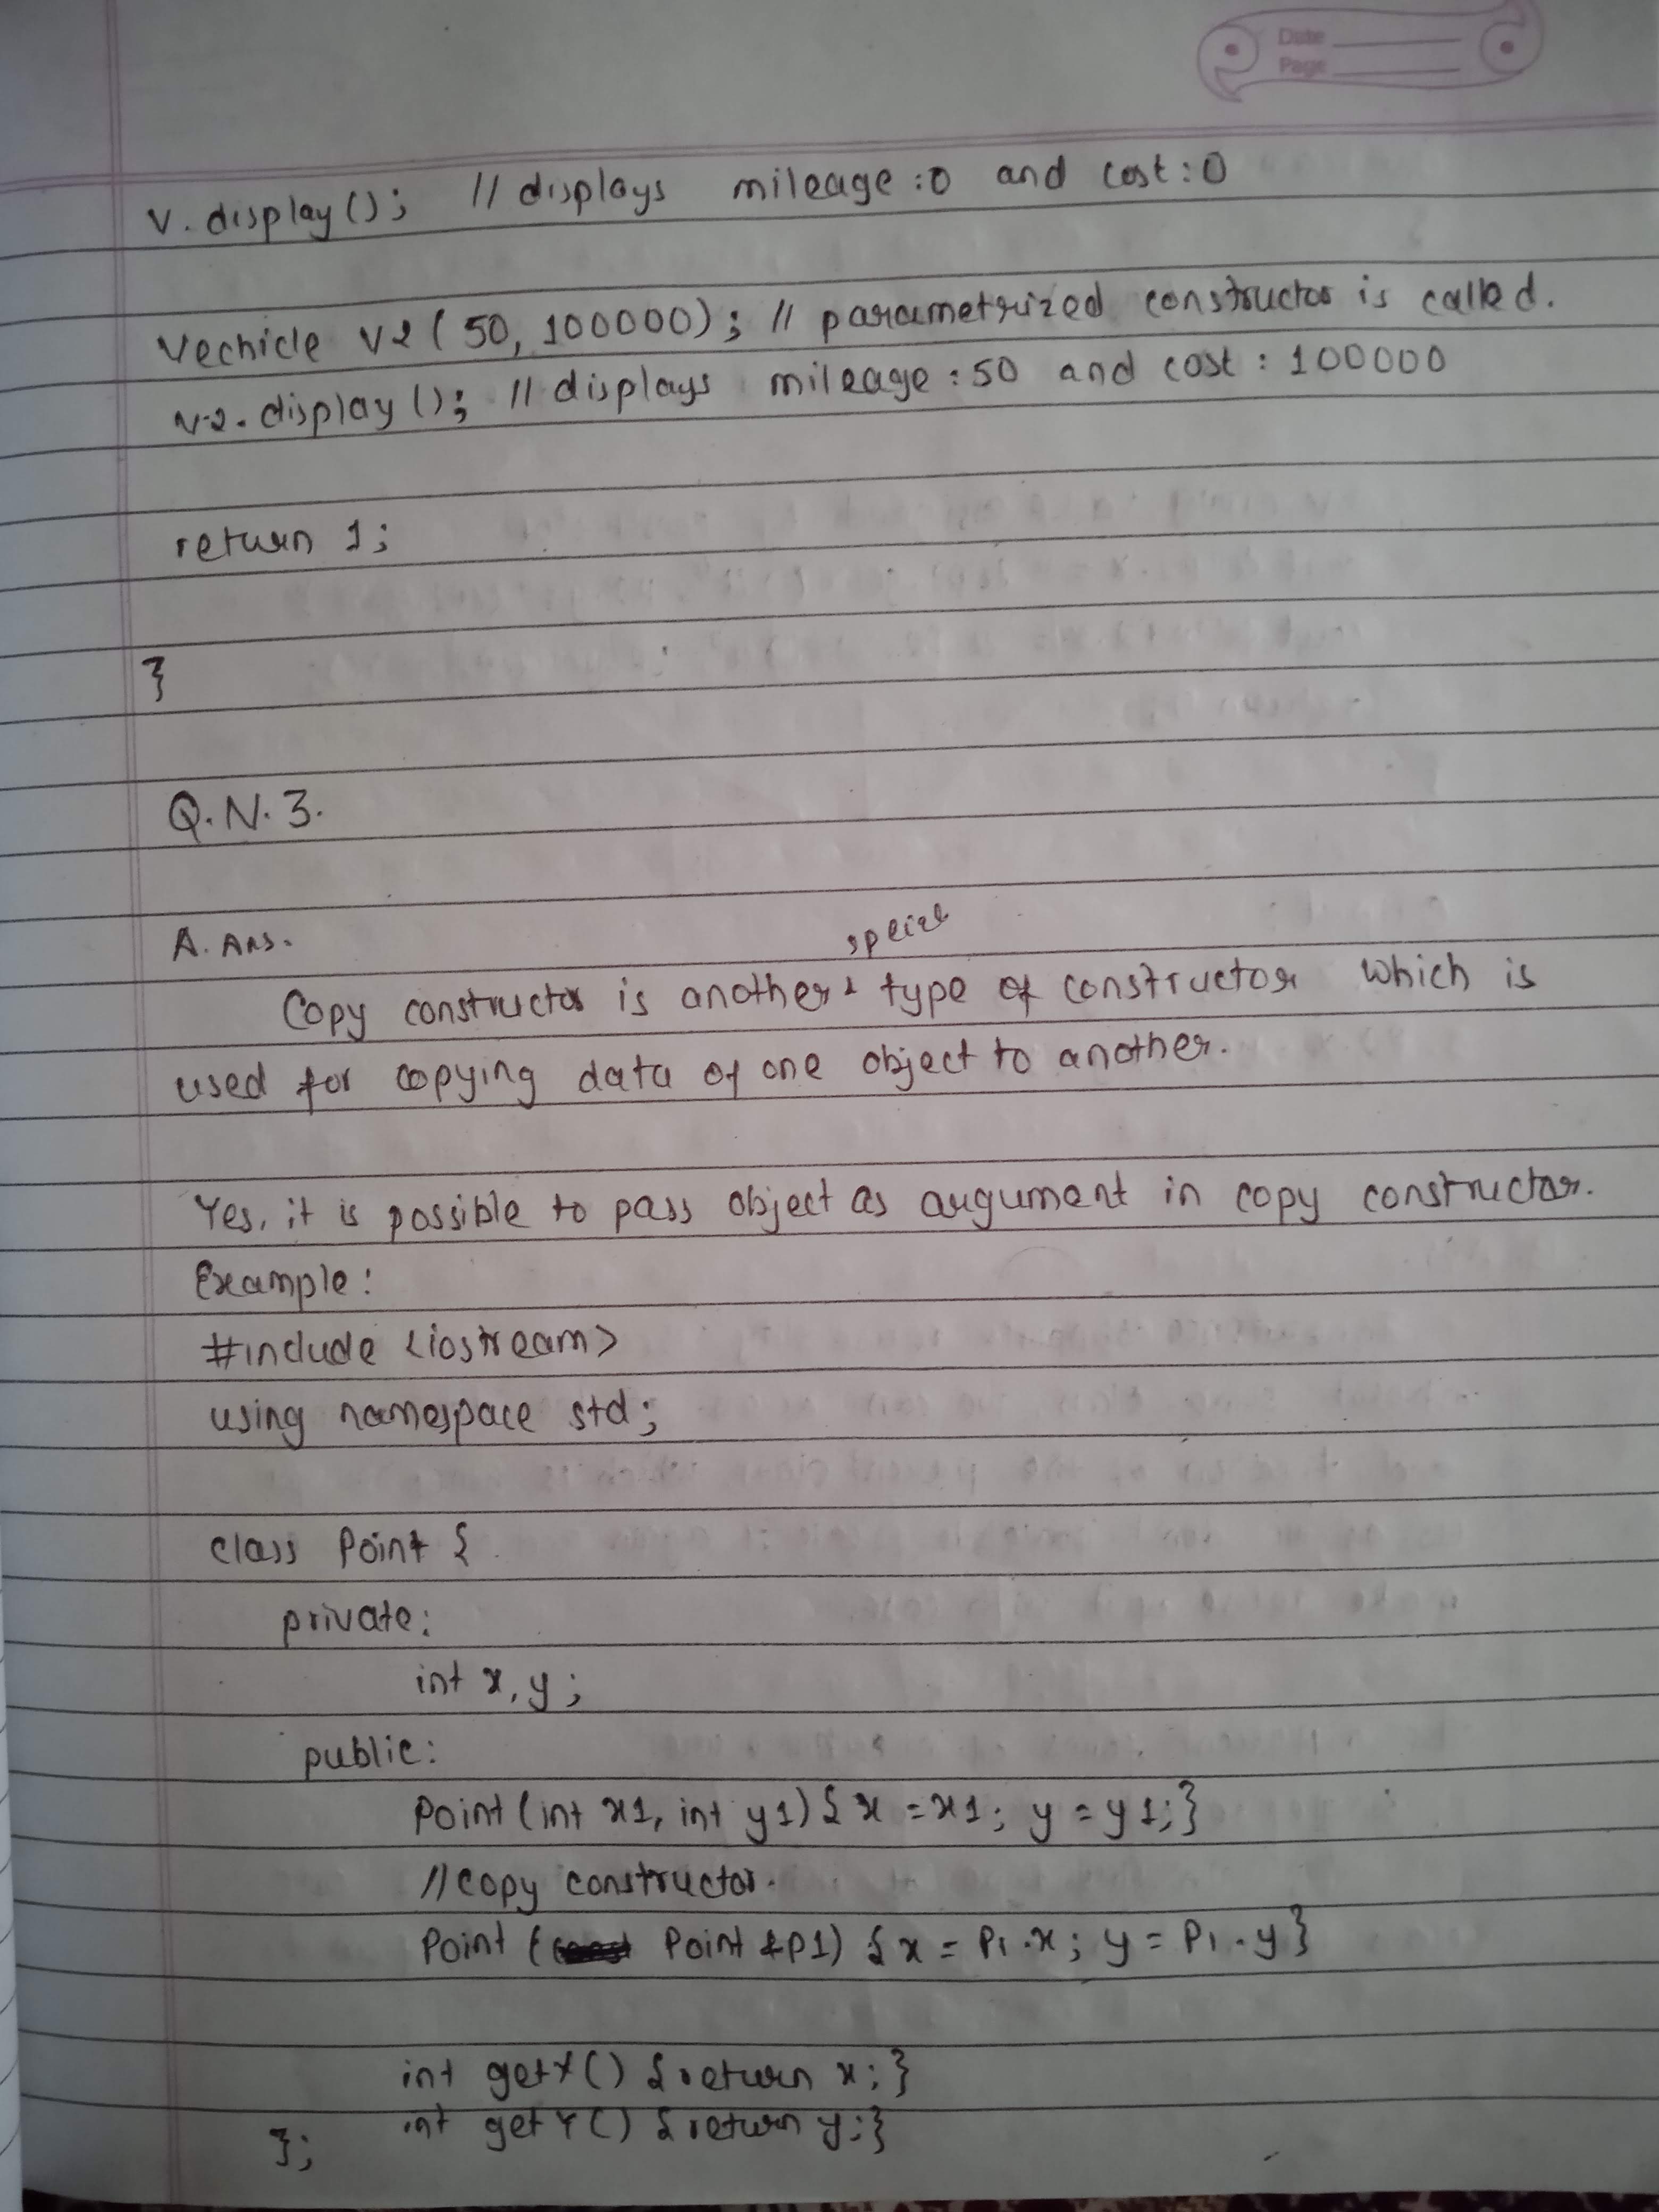 Date
Page
V. display(); // displays mileage:0 and cost:0
Vechicle V2 ( 50, 100000); // parametrized constructor is called.
V2. display (); // displays mileage:50 and cost: 100000
return 1;
}
Q.N. 3.
A. Ans.
special
Copy constructor is another type of constructor which is
used for copying data of one object to another.
Yes, it is possible to pass object as argument in copy constructor.
Example:
#include <iostream>
using namespace std;
class Point {
private:
int x, y;
public:
Point (int x1, int y1) { x = x1; y = y1;}
//copy constructor.
Point ( Point &p1) { x = P1.x; y = P1.y }
int getX() { return x;}
int getY() { return y;}
};